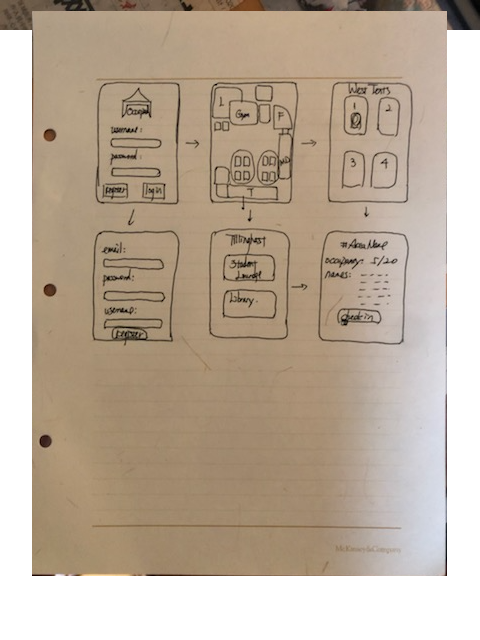 username:
password:
Register
login
1
Gym
F
T
West Tents
1
2
3
4
email:
password:
username:
Register
Tillinghast
Student
Lounge
Library.
#Area Name
occupancy: 5/20
names:
check in
McKinsey&Company